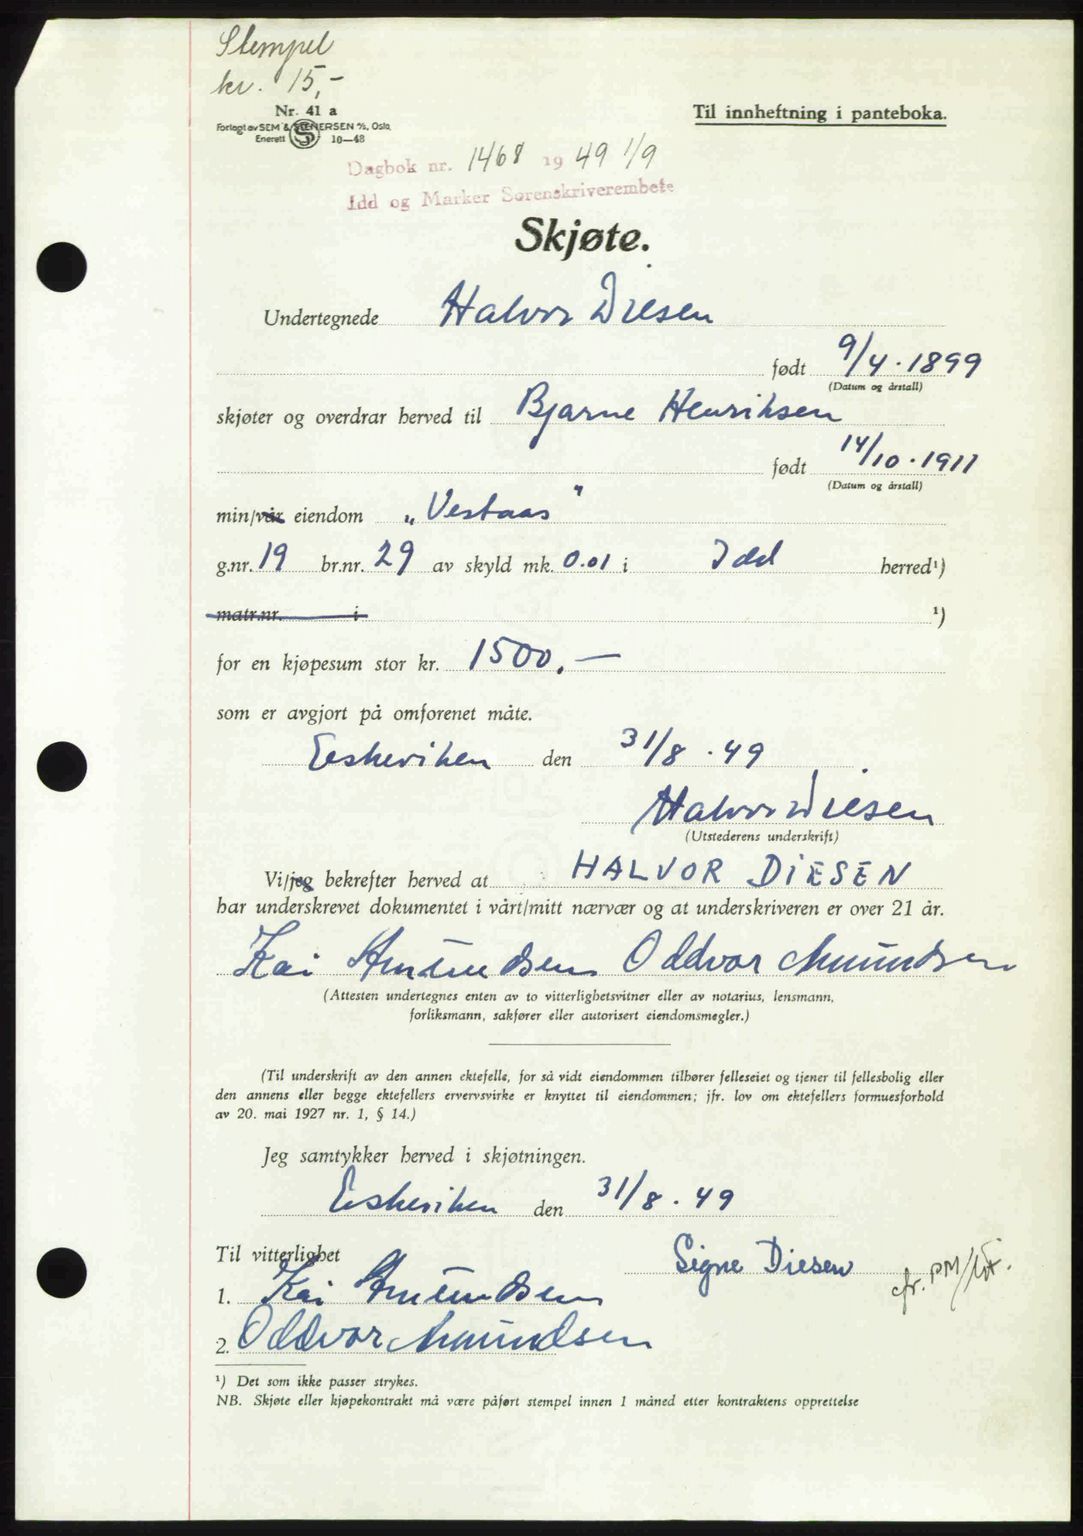 Stempel
kr. 15,-
Nr. 41 a
Forlagt av SEM & STENERSEN A/S, Oslo.
Enerett 10-48
Til innheftning i panteboka.
Dagbok nr. 1468 1949 1/9
Idd og Marker Sorenskriverembete
Skjøte.
Undertegnede Halvor Diesen
født 9/4 . 1899
(Datum og årstall)
skjøter og overdrar herved til Bjarne Henriksen
født 14/10 . 1911
(Datum og årstall)
min/vår eiendom „Vestaas"
g.nr. 19 br.nr. 29 av skyld mk. 0.01 i Idd herred¹)
matr.nr. i ¹)
for en kjøpesum stor kr. 1500,—
som er avgjort på omforenet måte.
Eskeviken den 31/8 . 49
Halvor Diesen
(Utstederens underskrift)
Vi/jeg bekrefter herved at HALVOR DIESEN
har underskrevet dokumentet i vårt/mitt nærvær og at underskriveren er over 21 år.
Kai Amundsen Oddvar Amundsen
(Attesten undertegnes enten av to vitterlighetsvitner eller av notarius, lensmann,
forliksmann, sakfører eller autorisert eiendomsmegler.)
(Til underskrift av den annen ektefelle, for så vidt eiendommen tilhører felleseiet og tjener til fellesbolig eller
den annens eller begge ektefellers ervervsvirke er knyttet til eiendommen; jfr. lov om ektefellers formuesforhold
av 20. mai 1927 nr. 1, § 14.)
Jeg samtykker herved i skjøtningen.
Eskeviken den 31/8 . 49
Til vitterlighet
Signe Diesen
cfr. PM/
1. Kai Amundsen
2. Oddvar Amundsen
¹) Det som ikke passer strykes.
NB. Skjøte eller kjøpekontrakt må være påført stempel innen 1 måned etter kontraktens opprettelse